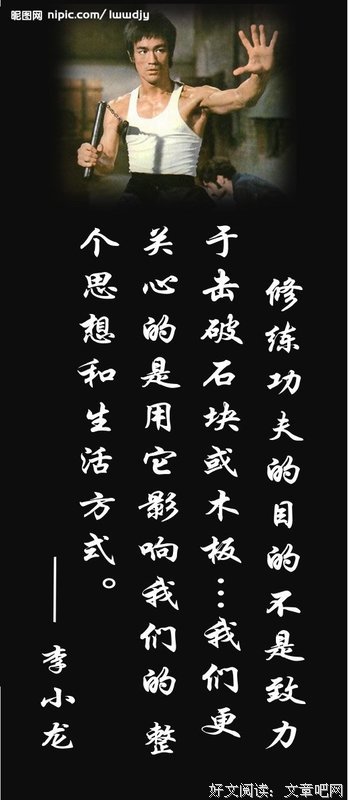 昵图网 nipic.com/lwwdjy
修练功夫的目的不是致力
于击破石块或木板…我们更
关心的是用它影响我们的 整
个思想和生活方式。
——李小龙
好文阅读：文章吧网